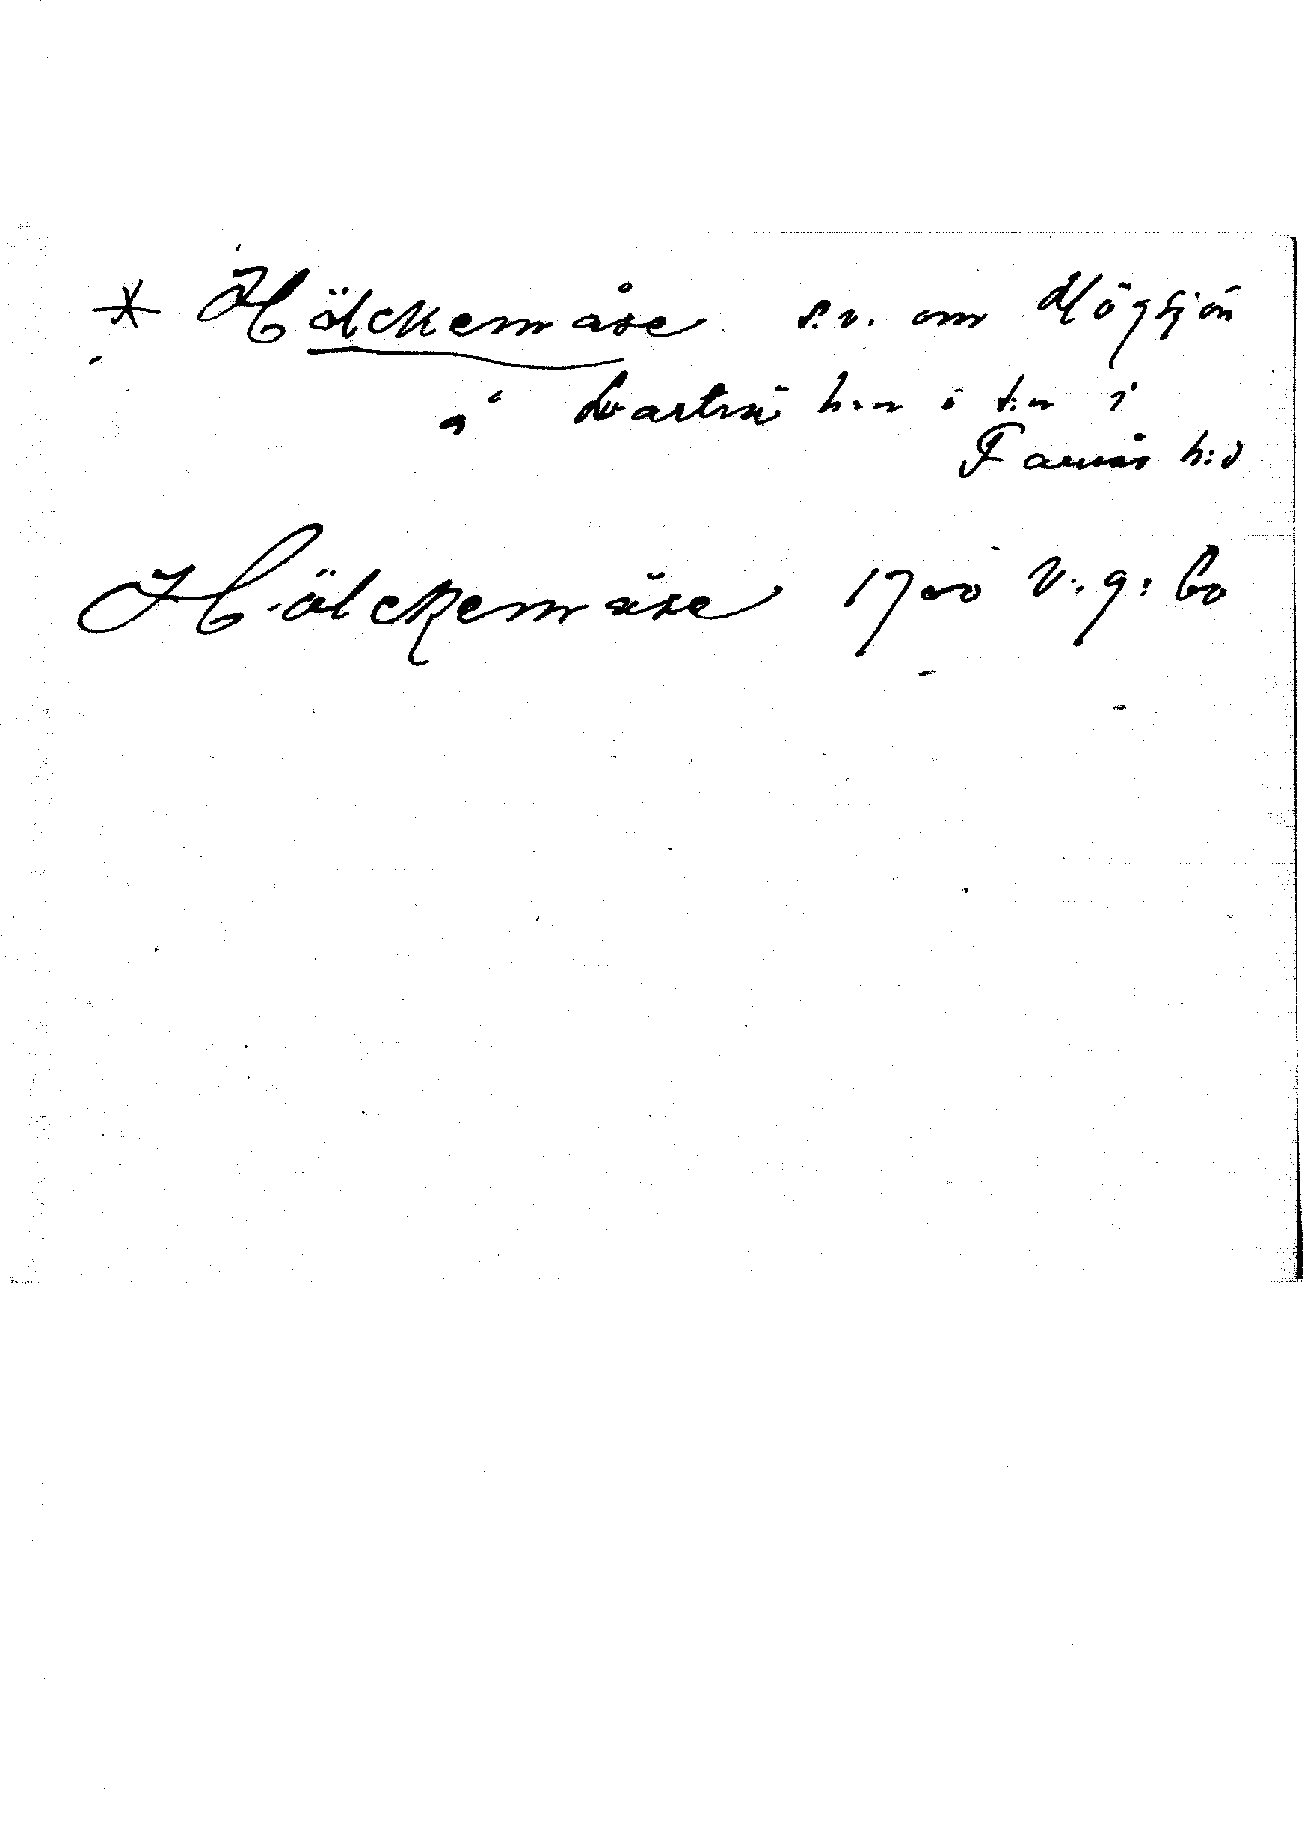 * Hölckemåse s.v. om Högsjön
å Svartrå h:n o t:n i
Faurås h:d
Hölckemåse 1700 V.g: 60